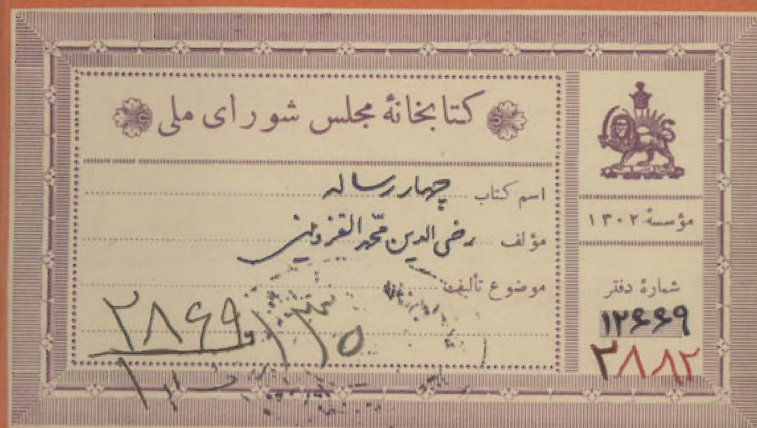 کتابخانهٔ مجلس شورای ملی
اسم کتاب چهار رساله
مؤلف رضی الدین محمد القزوینی
موضوع تألیف
مؤسسهٔ ۱۳۰۲
شمارهٔ دفتر
۱۲۶۶۹
۳۸۸۲
۲۸۶۹